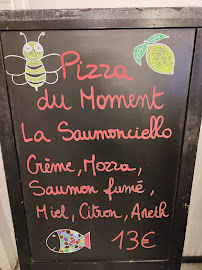 Pizza
du Moment
La Saumonciello
Crème, Mozza,
Saumon fumé,
Miel, Citron, Aneth
13€